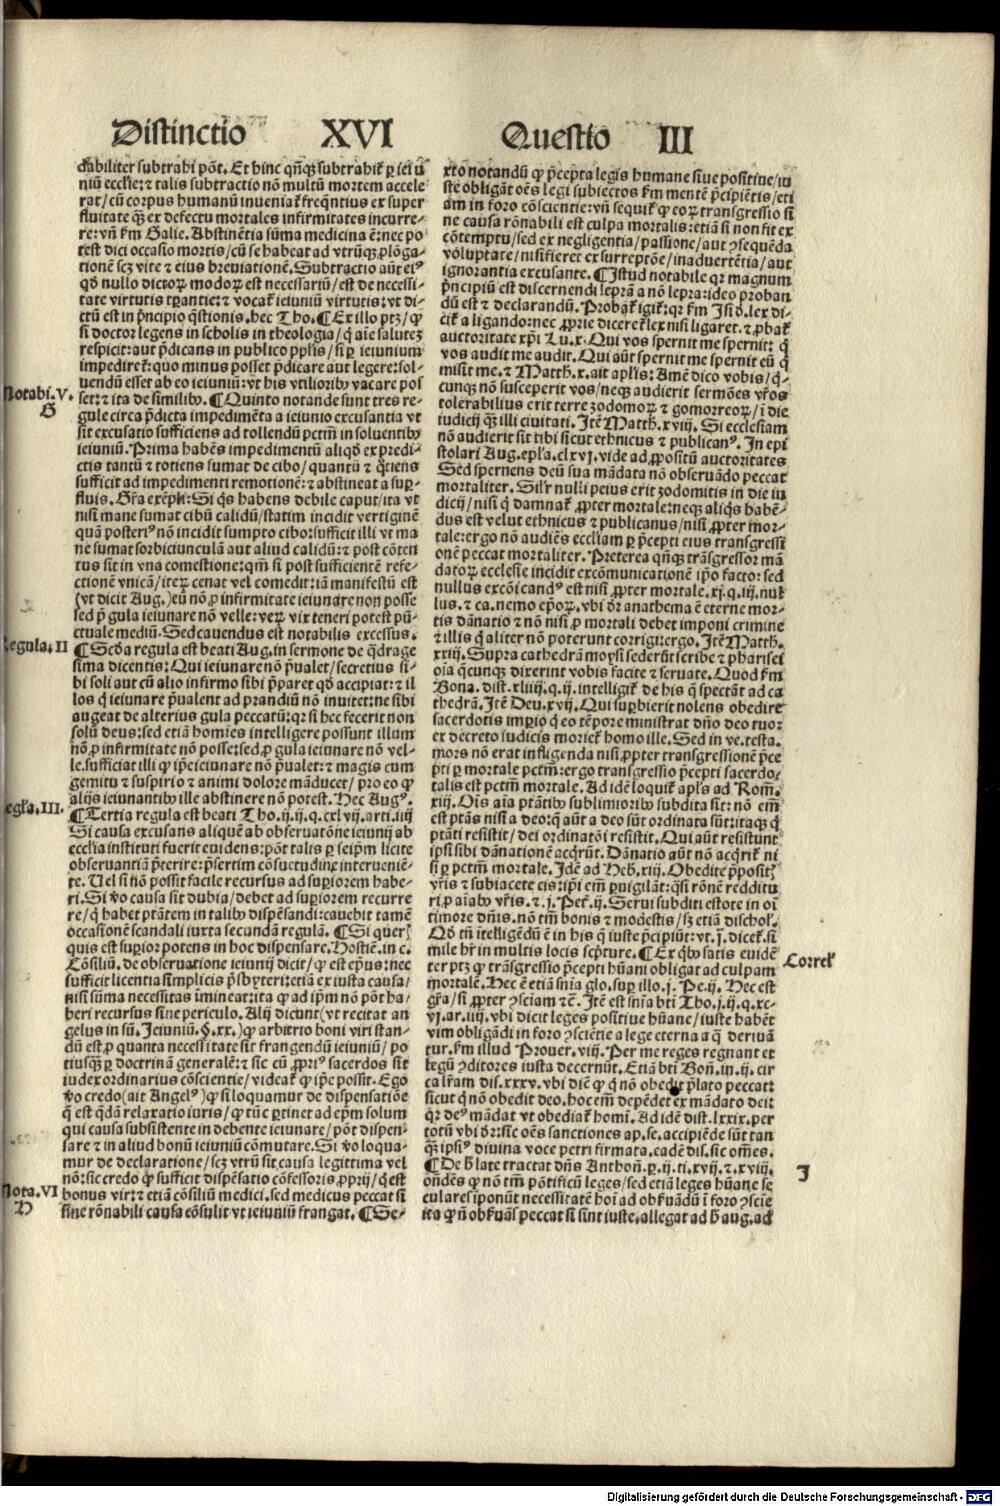 Distinctio XVI Questio III
dabiliter subtrahi põt. Et hinc qñq; subtrahit᷑ ꝑ iei u
niũ ecclie: ⁊ talis subtractio nõ multũ mortem accele
rat/cũ corpus humanũ inueniat᷑ freq̃ntius ex super
fluitate q̃ꝫ ex defectu mortales infirmitates incurre-
re: vñ ẜm Galie. Abstinẽtia sũma medicina ẽ: nec po
test dici occasio mortis/cũ se habeat ad vtrũq; ꝓlõga-
tionẽ scꝫ vite ⁊ eius breuiationẽ. Subtractio aũt ei⁹
qđ nullo dictoꝝ modoꝝ est necessariũ/est de necessi-
tate virtutis tꝑantie: ⁊ vocat᷑ ieiuniũ virtutis: vt di-
ctũ est in p̃ncipio q̃stionis. hec Tho. ¶ Ex illo ptꝫ/ ꝙ
si doctor legens in scholis in theologia/q̃ aĩe salutez
respicit: aut p̃dicans in publico pplĩs/si ꝑ ieiunium
impediret᷑: quo minus posset p̃dicare aut legere: sol-
uendũ esset ab eo ieiuniũ: vt his vtilioribꝰ vacare pos
set: ⁊ ita de similibꝰ. ¶ Quinto notande sunt tres re-
Notabi. V.
G
gule circa p̃dicta impedimẽta a ieiunio excusantia vt
sit excusatio sufficiens ad tollendũ pctm̃ in soluentibꝰ
ieiuniũ. Prima habẽs impedimentũ aliqđ ex predi-
ctis tantũ ⁊ totiens sumat de cibo/quantũ ⁊ q̃tiens
sufficit ad impedimenti remotionẽ: ⁊ abstineat a suꝑ-
fluis. Gr̃a exẽpli: Si q̃s habens debile caput/ita vt
nisi mane sumat cibũ calidũ/statim incidit vertiginẽ
quã posteri⁹ nõ incidit sumpto cibo: sufficit illi vt ma
ne sumat sorbiciunculã aut aliud calidũ: ⁊ post cõten
tus sit in vna comestione: qm̃ si post sufficientẽ refe-
ctionẽ vnicã/iteꝝ cenat vel comedit: iã manifestũ est
(vt dicit Aug.) eũ nõ ꝓ infirmitate ieiunare non posse
sed ꝓ gula ieiunare nõ velle: veꝝ vix teneri potest pũ-
ctuale mediũ. Sed cauendus est notabilis excessus.
Regula. II
¶ Scđa regula est beati Aug. in sermone de q̃drage
sima dicentis: Qui ieiunare nõ p̃ualet/secretius si-
bi soli aut cũ alio infirmo sibi p̃paret qđ accipiat: ⁊ il
los q̃ ieiunare p̃ualent ad prandiũ non inuitet: ne sibi
augeat de alterius gula peccatũ: qr si hec fecerit non
solũ deus: sed etiã homĩes intelligere possunt illum
nõ ꝓ infirmitate nõ posse: sed ꝓ gula ieiunare nõ vel-
le. sufficiat illi ꝙ ip̃e ieiunare nõ p̃ualet: ⁊ magis cum
gemitu ⁊ suspirio ⁊ animi dolore mãducet/ pro eo ꝙ
alijs ieiunantibꝰ ille abstinere nõ potest. Hec Aug⁹.
Regl̃a. III.
¶ Tertia regula est beati Tho. ij. ij. q. cxlvij. arti. iiij
Si causa excusans aliquẽ ab obseruatõne ieiunij ab
ecclia instituti fuerit euidens: põt talis ꝑ seip̃m licite
obseruantiã p̃terire: p̃sertim cõsuetudine interueniẽ-
te. Uel si nõ possit facile recursus ad suꝑiorem habe-
ri. Si ṽo causa sit dubia/debet ad suꝑiorem recurre
re/q̃ habet ptãtem in talibꝰ dispẽsandi: cauebit tamẽ
occasionẽ scandali iuxta secundã regulã. ¶ Si querꝭ
quis est suꝑior potens in hoc dispensare. Hostiẽ. in c.
Cõsiliũ. de obseruatione ieiunij dicit/ꝙ est ep̃us: nec
sufficit licentia simplicis p̃sbyteri: etiã ex iusta causa/
nisi sũma necessitas imineat: ita ꝙ ad ip̃m nõ põt ha-
beri recursus sine periculo. Alij dicunt (vt recitat an
gelus in sũ. Ieiuniũ. §. xx.) ꝙ arbitrio boni viri stan-
dũ est. ꝓ quanta necessitate sit frangendũ ieiuniũ/ po
tiusq̃ꝫ ꝑ doctrinã generalẽ: ⁊ sic cũ ꝓpri⁹ sacerdos sit
iudex ordinarius cõscientie/videat᷑ ꝙ ip̃e possit. Ego
ṽo credo (ait Angel⁹) ꝙ si loquamur de dispensatiõe
q̃ est q̃dã relaxatio iuris/ ꝙ tũc ꝑtinet ad ep̃m solum
qui causa subsistente in debente ieiunare/ põt dispen-
sare ⁊ in aliud bonũ ieiuniũ cõmutare. Si ṽo loqua-
mur de declaratione/ scꝫ vtrũ sit causa legittima vel
nõ: sic credo ꝙ sufficit dispẽsatio cõfessoris ꝓprij/ q̃ est
Nota. VI
H
bonus vir: ⁊ etiã cõsiliũ medici. sed medicus peccat si
sine rõnabili causa cõsulit vt ieiuniũ frangat. ¶ Se-
xto notandũ ꝙ p̃cepta legis humane siue positiue/iu
ste obligãt oẽs legi subiectos ẜm mentẽ p̃cipiẽtis/eti
am in foro cõscientie: vñ sequit᷑ ꝙ eoꝝ transgressio si
ne causa rõnabili est culpa mortalis: etiã si non fit ex
cõtemptu/sed ex negligentia/passione/aut ↄsequẽda
voluptate/nisi fieret ex surreptõe/inaduertẽtia/aut
ignorantia excusante. ¶ Istud notabile qr magnum
p̃ncipiũ est discernendi leprã a nõ lepra: ideo proban
dũ est ⁊ declarandũ. Probat᷑ igit᷑: qr ẜm Isiđ. lex di-
cit᷑ a ligando: nec ꝓprie diceret᷑ lex nisi ligaret. ⁊ ꝓbat᷑
auctoritate xp̃i Lu. x. Qui vos spernit me spernit: q̃
vos audit me audit. Qui aũt spernit me spernit eũ q̃
misit me. ⁊ Matth. x. ait apl̃is: Amẽ dico vobis/q̃-
cunq; nõ susceperit vos/neq; audierit sermões vr̃os
tolerabilius erit terre zodomoꝝ ⁊ gomorreoꝝ/ĩ die
iudicij q̃ꝫ illi ciuitati. Itẽ Matth. xviij. Si ecclesiam
nõ audierit sit tibi sicut ethnicus ⁊ publican⁹. In epi
stolari Aug. epl̃a. clxvj. vide ad ꝓpositũ auctoritates
Sed spernens deũ sua mãdata nõ obseruãdo peccat
mortaliter. Sil̃r nulli peius erit zodomitis in die iu
dicij/nisi q̃ damnat᷑ ꝓpter mortale: neq; aliq̃s habẽ-
dus est velut ethnicus ⁊ publicanus/nisi ꝓpter mor-
tale: ergo nõ audiẽs eccliam ꝑ p̃cepti eius transgressi
onẽ peccat mortaliter. Preterea qñq; trãsgressor mã
datoꝝ ecclesie incidit excõmunicationẽ ip̃o facto: sed
nullus excõicand⁹ est nisi ꝓpter mortale. xj. q. iij. nul
lus. ⁊ ca. nemo ep̃oꝝ. vbi đr anathema ẽ eterne mor-
tis dãnatio ⁊ nõ nisi ꝓ mortali debet imponi crimine
⁊ illis q̃ aliter nõ poterunt corrigi: ergo. Itẽ Matth.
xxiij. Supra cathedrã moysi sederũt scribe ⁊ pharisei
oĩa q̃cunq; dixerint vobis facite ⁊ seruate. Quod ẜm
Bona. dist. xliiij. q. ij. intelligit᷑ de his q̃ spectãt ad ca
thedrã. Itẽ Deu. xvij. Qui suꝑbierit nolens obedire
sacerdotis imꝑio q̃ eo tẽpore ministrat dño deo tuo:
ex decreto iudicis moriet᷑ homo ille. Sed in ve. testa.
mors nõ erat infligenda nisi ꝓpter transgressionẽ p̃ce
p̃ti ꝑ mortale pctm̃: ergo transgressio p̃cepti sacerdo-
talis est pctm̃ mortale. Ad idẽ loquit᷑ apl̃s ad Rom̃.
xiij. Oĩs aĩa ptãtibꝰ sublimioribꝰ subdita sit: nõ em̃
est ptãs nisi a deo: q̃ aũt a deo sũt ordinata sũt: itaq; q̃
ptãti resistit/ dei ordinatõni resistit. Qui aũt resistunt
ip̃si sibi dãnationẽ acq̃rũt. Dãnatio aũt nõ acq̃rit᷑ ni
si ꝑ pctm̃ mortale. Idẽ ad Heb. xiij. Obedite p̃positꝭ
vr̃is ⁊ subiacete eis: ip̃i em̃ ꝑuigilãt: q̃si rõnẽ redditu
ri. ꝓ aĩabꝰ vr̃is. ⁊. j. Pet᷑. ij. Serui subditi estote in oĩ
timore dñis. nõ tm̃ bonis ⁊ modestis/ sꝫ etiã dischol᷑.
Qđ tñ ĩtelligẽdũ ẽ in his q̃ iuste p̃cipiũt: vt. j̃. dicet᷑. si
mile hr̃ in multis locis sc̃pture. ¶ Ex q̃bꝰ satis euidẽ
Correl᷑
ter ptꝫ ꝙ trãsgressio p̃cepti hũani obligat ad culpam
mortalẽ. Hec ẽ etiã sñia glo. suꝑ illo. j. Pe. ij. Hec est
gr̃a/si ꝓpter ↄsciam ⁊c̃. Itẽ est sñia bt̃i Tho. j. ij. q. xc-
vj. ar. iiij. vbi dicit leges positiue hũane/iuste habẽt
vim obligãdi in foro ↄsciẽtie a lege eterna a q̃ deriuã
tur. ẜm illud Prouer. viij. Per me reges regnant et
legũ ↄditores iusta decernũt. Etiã bt̃i Boñ. in. ij. cir
ca lr̃am dis. xxxv. vbi diẽ ꝙ q̃ nõ obedit p̃lato peccat:
sicut q̃ nõ obedit deo. hoc em̃ depẽdet ex mãdato dei:
qr de⁹ mãdat vt obediat᷑ homĩ. Ad idẽ dist. lxxix. per
totũ vbi đr: sic oẽs sanctiones ap. se. accipiẽde sũt tan
q̃ꝫ ipsi⁹ diuina voce petri firmata. eadẽ dis. sic omẽs.
J
¶ De h̃ late tractat dñs Anthoñ. ꝑ. ij. ti. xvij. ⁊. xviij.
ondẽs ꝙ nõ tm̃ põtificũ leges/sed etiã leges hũane se
culares ĩponũt necessitatẽ hoĩ ad obẜuãdũ ĩ foro ↄscie
ita ꝙ ñ obẜuãs peccat si sint iuste. allegat ad h̃ aug. ad
Digitalisierung gefördert durch die Deutsche Forschungsgemeinschaft - DFG